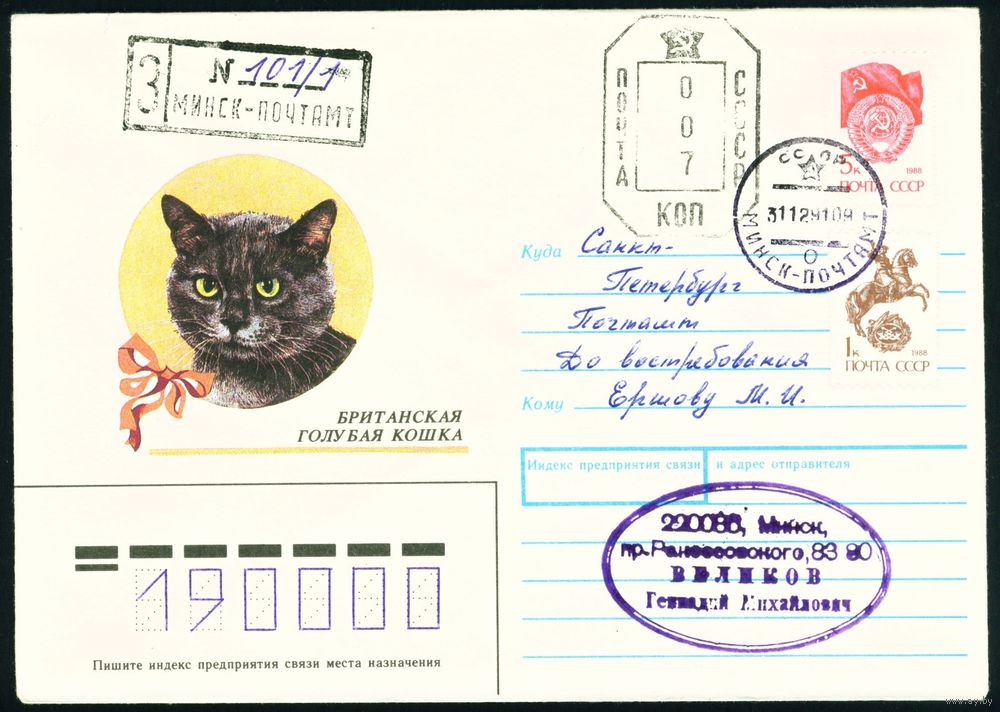 З № 101/1
МИНСК-ПОЧТАМТ
ПОЧТА СССР
007
КОП
5к 1988
ПОЧТА СССР
СССР
31129109
МИНСК-ПОЧТАМТ
О
1к 1988
ПОЧТА СССР
БРИТАНСКАЯ
ГОЛУБАЯ КОШКА
Куда Санкт-
Петербург
Почтамт
До востребования
Кому Ершову М. И.
Индекс предприятия связи и адрес отправителя
Минск,
83 80
ВЕЛИКОВ
Геннадий Михайлович
190000
Пишите индекс предприятия связи места назначения
www.ay.by